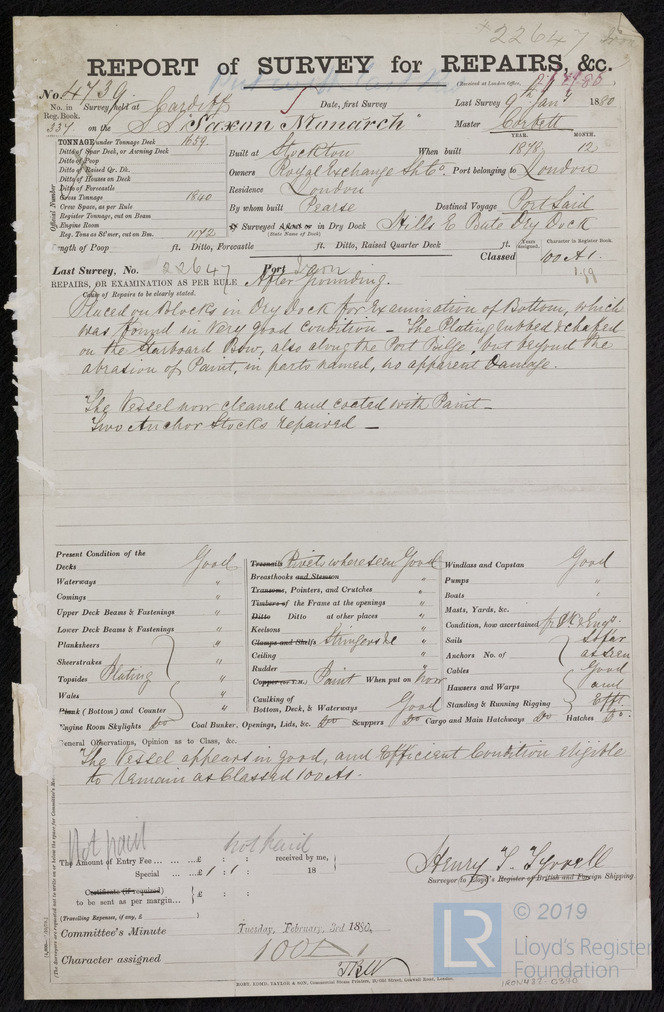 22647
REPORT of SURVEY for REPAIRS, &c.
(Received at London Office,
No. 4739.
No. in Survey held at Cardiff Date, first Survey Last Survey 9 Jany 1880
Reg. Book.
337 on the S.S. "Saxon Monarch" Master Corbett
TONNAGE under Tonnage Deck 1659
Ditto of Spar Deck, or Awning Deck
Ditto of Poop
Ditto of Raised Qr. Dk.
Ditto of Houses on Deck
Ditto of Forecastle
Gross Tonnage 1840
Crew Space, as per Rule
Register Tonnage, cut on Beam
Engine Room
Reg. Tons as St'mer, cut on Bm. 1172
Official Number
YEAR. MONTH.
Built at Stockton When built 1878 12
Owners Royal Exchange Sh Co. Port belonging to London
Residence London
By whom built Pearse Destined Voyage Port Said
If Surveyed Afloat or in Dry Dock Hills E Bute Dry Dock
(State Name of Dock)
Length of Poop ft. Ditto, Forecastle ft. Ditto, Raised Quarter Deck ft.
Years assigned. Character in Register Book.
Classed 100 A1.
Last Survey, No. 22647 Port
REPAIRS, OR EXAMINATION AS PER RULE After Grounding.
Cause of Repairs to be clearly stated.
Placed on Blocks in Dry Dock for Examination of Bottom, which
was found in very good condition — The Plating rubbed & chafed
on the Starboard Bow, also along the Port Bilge, but beyond the
abrasion of Paint, in parts named, no apparent Damage.
The Vessel now cleaned and coated with Paint —
Two Anchor Stocks repaired —
Present Condition of the
Decks Good
Waterways "
Comings "
Upper Deck Beams & Fastenings "
Lower Deck Beams & Fastenings "
Planksheers "
Sheerstrakes "
Topsides Plating "
Wales "
Plank (Bottom) and Counter "
Engine Room Skylights Do Coal Bunker. Openings, Lids, &c. Do Scuppers Do Cargo and Main Hatchways Do Hatches Do.
Treenails Rivets where seen Good
Breasthooks and Stemson "
Transoms, Pointers, and Crutches "
Timbers of the Frame at the openings "
Ditto Ditto at other places "
Keelsons "
Clamps and Shelfs Stringers &c "
Ceiling "
Rudder "
Copper (or Y.M.) Paint When put on now
Caulking of
Bottom, Deck, & Waterways Good
Windlass and Capstan Good
Pumps "
Boats "
Masts, Yards, &c.
Condition, how ascertained
Sails So far
Anchors No. of as seen
Cables Good
Hawsers and Warps and
Standing & Running Rigging Efft.
General Observations, Opinion as to Class, &c.
The Vessel appears in good, and Efficient Condition eligible
to remain as Classed 100 A1.
Not paid
not paid
The Amount of Entry Fee ... £ : : received by me,
Special ... £ 1 : 1 : 18
Certificate (if required)
to be sent as per margin... £ : :
(Travelling Expenses, if any, £ )
Henry T. Tyrrell
Surveyor to Lloyd's Register of British and Foreign Shipping
Committee's Minute Tuesday, February, 3rd 1880.
Character assigned 100 A 1
KENT, LOMD, TAYLOR & SON, Commercial Steam Printers,
LR
© 2019
Lloyd's Register
Foundation
IRON422-0390